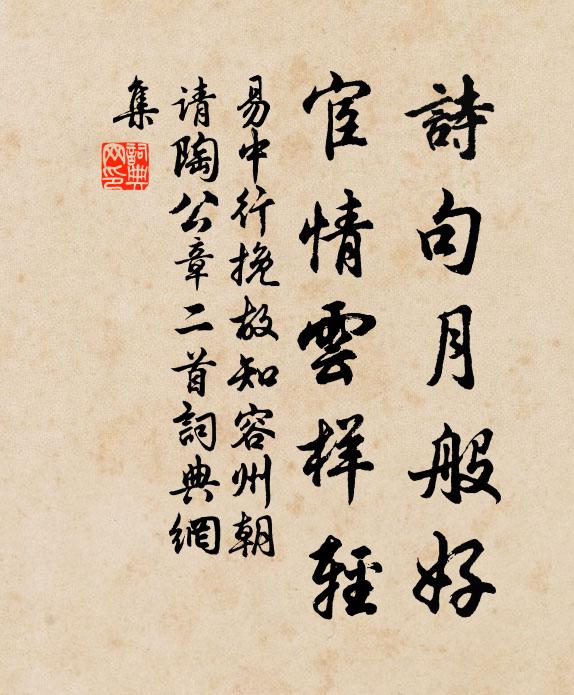 詩句月般好
宦情雲样輕
易中行挽故知容州朝
请陶公章二首詞典網
集
詞典
网印